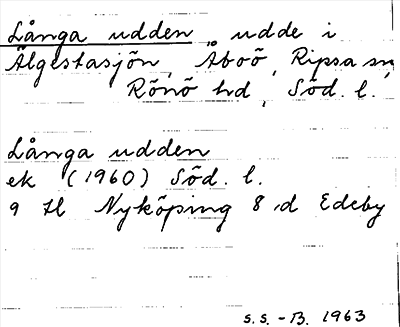 Långa udden udde i
Älgestasjön, Åboö, Ripsa sn,
Rönö hd, Söd. l.
Långa udden
ek (1960) Söd. l.
9 H Nyköping 8 d Edeby
S.S. - B. 1963